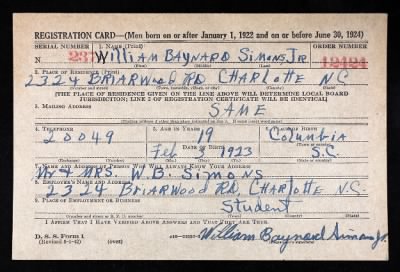 REGISTRATION CARD—(Men born on or after January 1, 1922 and on or before June 30, 1924)
SERIAL NUMBER 1. NAME (Print) ORDER NUMBER
William Baynard Simons, Jr 12424
2. PLACE OF RESIDENCE (Print)
2324 Briarwood Rd Charlotte N.C.
[THE PLACE OF RESIDENCE GIVEN ON THE LINE ABOVE WILL DETERMINE LOCAL BOARD
JURISDICTION; LINE 2 OF REGISTRATION CERTIFICATE WILL BE IDENTICAL]
3. MAILING ADDRESS
SAME
4. TELEPHONE 5. AGE IN YEARS 6. PLACE OF BIRTH
20049 19 Columbia
DATE OF BIRTH
Feb 3 1923 S.C.
7. NAME AND ADDRESS OF PERSON WHO WILL ALWAYS KNOW YOUR ADDRESS
Mr & Mrs. W.B. Simons
8. EMPLOYER'S NAME AND ADDRESS
2324 Briarwood Rd, Charlotte N.C.
9. PLACE OF EMPLOYMENT OR BUSINESS
Student
I AFFIRM THAT I HAVE VERIFIED ABOVE ANSWERS AND THAT THEY ARE TRUE.
D. S. S. Form 1
(Revised 6-1-42) (over)
William Baynard Simons Jr.